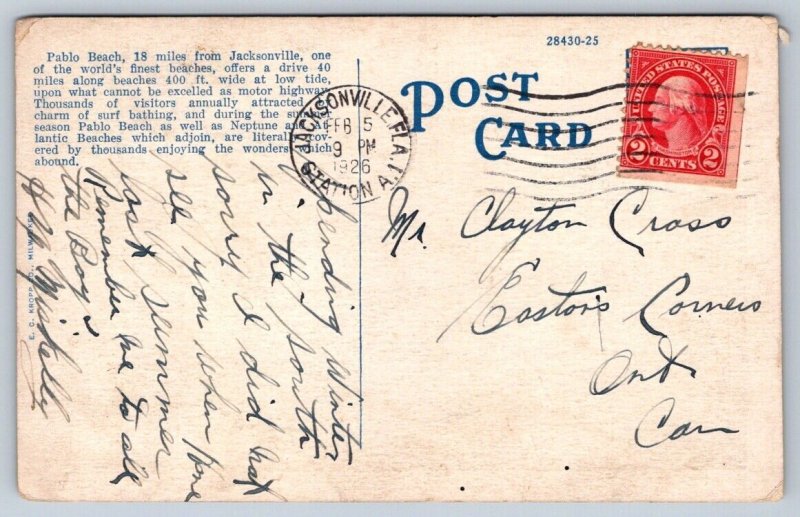 Pablo Beach, 18 miles from Jacksonville, one
of the world's finest beaches, offers a drive 40
miles along beaches 400 ft. wide at low tide,
upon what cannot be excelled as motor highway.
Thousands of visitors annually attracted
charm of surf bathing, and during the summer
season Pablo Beach as well as Neptune and At-
lantic Beaches which adjoin, are literally cov-
ered by thousands enjoying the wonders which
abound.
28430-25
POST
CARD
JACKSONVILLE, FLA.
FEB 5
9 PM
1926
STATION A.
UNITED STATES POSTAGE
2 CENTS 2
Mr. Clayton Cross
Easton's Corners
Ont
Can
Spending Winter
in the South
sorry I did not
see you when home
last summer
Remember me to all
the Boys
E. C. KROPP CO., MILWAUKEE